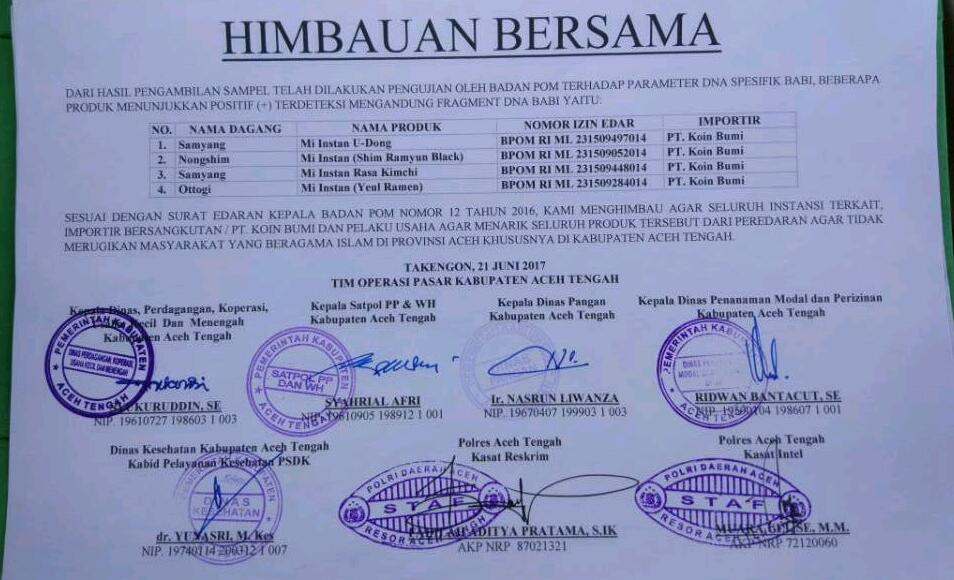 HIMBAUAN BERSAMA
DARI HASIL PENGAMBILAN SAMPEL TELAH DILAKUKAN PENGUJIAN OLEH BADAN POM TERHADAP PARAMETER DNA SPESIFIK BABI, BEBERAPA
PRODUK MENUNJUKKAN POSITIF (+) TERDETEKSI MENGANDUNG FRAGMENT DNA BABI YAITU:
NO. NAMA DAGANG NAMA PRODUK NOMOR IZIN EDAR IMPORTIR
1. Samyang Mi Instan U-Dong BPOM RI ML 231509497014 PT. Koin Bumi
2. Nongshim Mi Instan (Shim Ramyun Black) BPOM RI ML 231509052014 PT. Koin Bumi
3. Samyang Mi Instan Rasa Kimchi BPOM RI ML 231509448014 PT. Koin Bumi
4. Ottogi Mi Instan (Yeul Ramen) BPOM RI ML 231509284014 PT. Koin Bumi
SESUAI DENGAN SURAT EDARAN KEPALA BADAN POM NOMOR 12 TAHUN 2016, KAMI MENGHIMBAU AGAR SELURUH INSTANSI TERKAIT,
IMPORTIR BERSANGKUTAN / PT. KOIN BUMI DAN PELAKU USAHA AGAR MENARIK SELURUH PRODUK TERSEBUT DARI PEREDARAN AGAR TIDAK
MERUGIKAN MASYARAKAT YANG BERAGAMA ISLAM DI PROVINSI ACEH KHUSUSNYA DI KABUPATEN ACEH TENGAH.
TAKENGON, 21 JUNI 2017
TIM OPERASI PASAR KABUPATEN ACEH TENGAH
Kepala Dinas, Perdagangan, Koperasi,
Kecil Dan Menengah
Kabupaten Aceh Tengah
PEMERINTAH KABUPATEN
DINAS PERDAGANGAN, KOPERASI,
USAHA KECIL DAN MENENGAH
ACEH TENGAH
SYUKURUDDIN, SE
NIP. 19610727 198603 1 003
Kepala Satpol PP & WH
Kabupaten Aceh Tengah
PEMERINTAH KABUPATEN
SATPOL PP
DAN WH
ACEH TENGAH
SYAHRIAL AFRI
NIP. 19610905 198912 1 001
Kepala Dinas Pangan
Kabupaten Aceh Tengah
Ir. NASRUN LIWANZA
NIP. 19670407 199903 1 003
Kepala Dinas Penanaman Modal dan Perizinan
Kabupaten Aceh Tengah
PEMERINTAH KABUPATEN
ACEH TENGAH
RIDWAN BANTACUT, SE
198607 1 001
Dinas Kesehatan Kabupaten Aceh Tengah
Kabid Pelayanan Kesehatan PSDK
DINAS
KESEHATAN
dr. YUNASRI, M. Kes
NIP. 19740114 200312 1 007
Polres Aceh Tengah
Kasat Reskrim
POLRI DAERAH ACEH
STAF
RESOR ACEH TENGAH
ADITYA PRATAMA, S.IK
AKP NRP 87021321
Polres Aceh Tengah
Kasat Intel
POLRI DAERAH ACEH
STAF
RESOR ACEH TENGAH
M.M.
AKP NRP 72120060